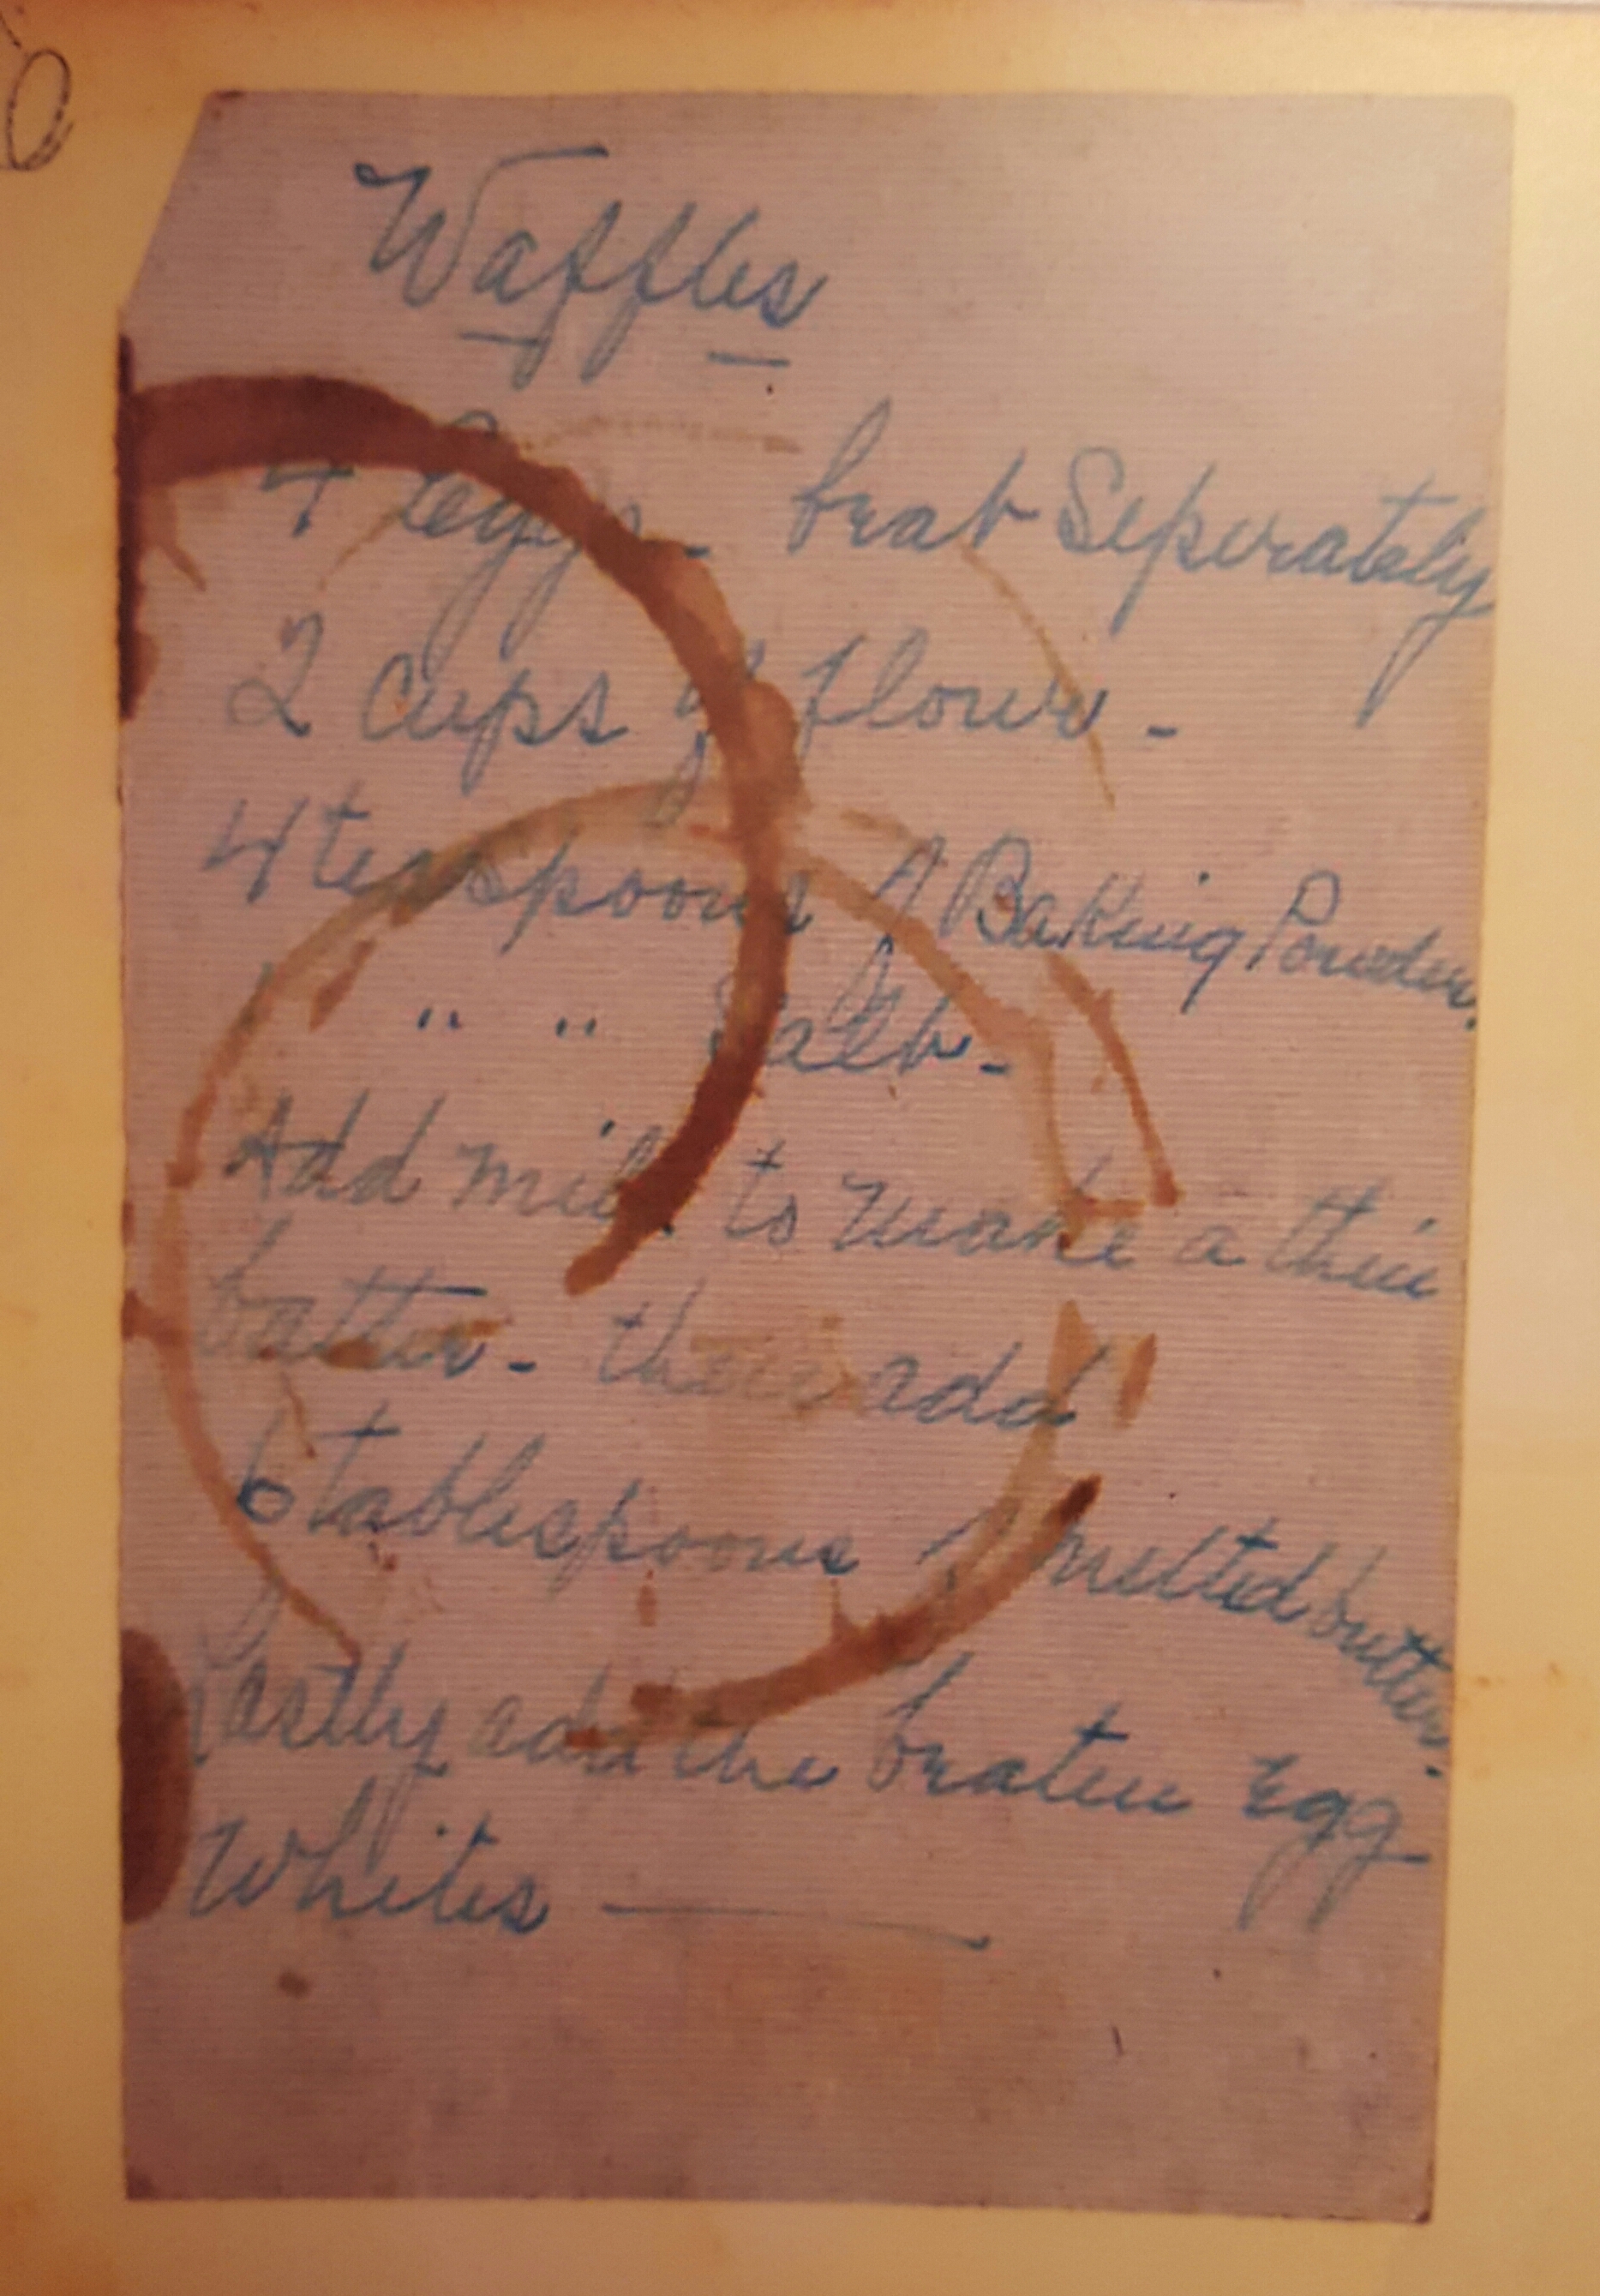 Waffles
4 Eggs - beat Seperately
2 Cups of flour -
4 teaspoons of Baking Powder.
1 " " Salt -
Add milk to make a thin
batter - then add
6 tablespoons of melted butter.
Lastly add the beaten Egg
Whites